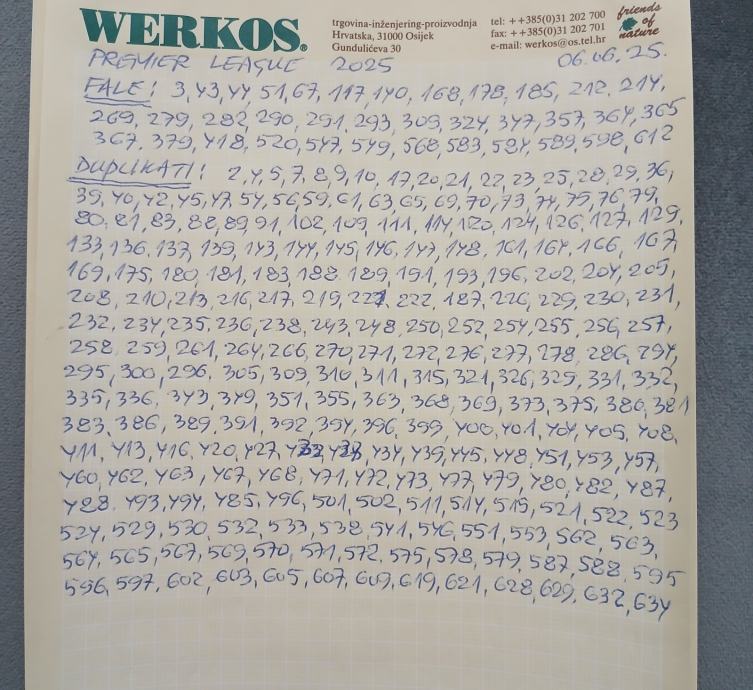 WERKOS®
trgovina-inženjering-proizvodnja
Hrvatska, 31000 Osijek
Gundulićeva 30
tel: ++385(0)31 202 700
fax: ++385(0)31 202 701
e-mail: werkos@os.tel.hr
friends
of
nature
PREMIER LEAGUE 2025 06.06.25.
FALE: 3,43,44,51,67,117,140,168,178,185,212,214,
269,279,282,290,291,293,309,324,347,357,364,365
367,379,418,520,547,549,568,583,584,589,598,612
DUPLIKATI: 2,4,5,7,8,9,10,17,20,21,22,23,25,28,29,36,
39,40,42,45,47,54,56,59,61,63,65,69,70,73,74,75,76,79,
80,81,83,88,89,91,102,109,111,114,120,124,126,127,129,
133,136,137,139,143,144,145,146,147,148,161,164,166,167,
169,175,180,181,183,188,189,191,193,196,202,204,205,
208,210,213,216,217,219,221,222,187,226,229,230,231,
232,234,235,236,238,243,248,250,252,254,255,256,257,
258,259,261,264,266,270,271,272,276,277,278,286,294,
295,300,296,305,309,310,311,315,321,326,329,331,332,
335,336,343,349,351,355,363,368,369,373,375,380,381
383,386,389,391,392,394,396,399,400,401,404,405,408,
411,413,416,420,427,434,439,445,448,451,453,457,
460,462,463,467,468,471,472,473,477,479,480,482,487,
488,493,494,485,496,501,502,511,514,519,521,522,523
524,529,530,532,533,538,541,546,551,553,562,563,
564,565,567,569,570,571,572,575,578,579,587,588,595
596,597,602,603,605,607,609,619,621,628,629,632,634